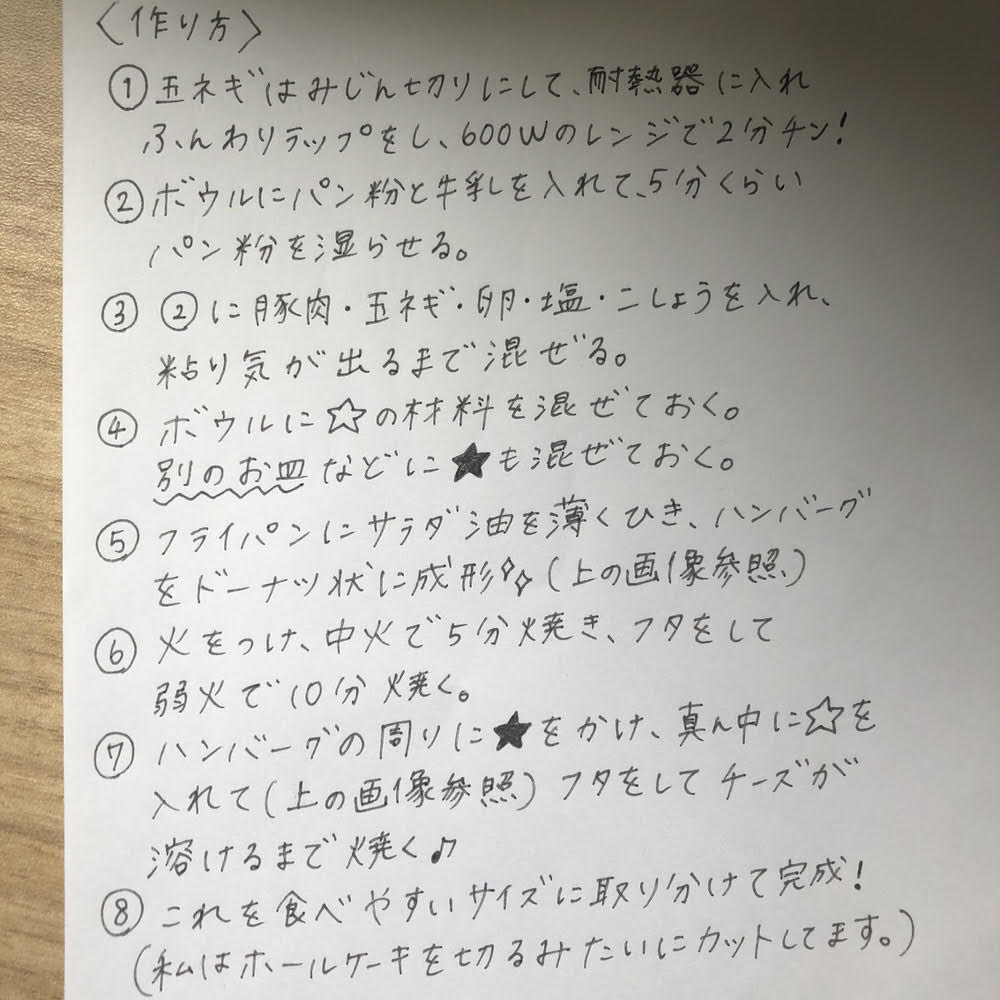 〈作り方〉
① 玉ネギはみじん切りにして、耐熱器に入れ
ふんわりラップをし、600Wのレンジで2分チン!
② ボウルにパン粉と牛乳を入れて、5分くらい
パン粉を湿らせる。
③ ②に豚肉・玉ネギ・卵・塩・こしょうを入れ、
粘り気が出るまで混ぜる。
④ ボウルに☆の材料を混ぜておく。
別のお皿などに★も混ぜておく。
⑤ フライパンにサラダ油を薄くひき、ハンバーグ
をドーナツ状に成形✧✧(上の画像参照)
⑥ 火をつけ、中火で5分焼き、フタをして
弱火で10分焼く。
⑦ ハンバーグの周りに★をかけ、真ん中に☆を
入れて(上の画像参照)フタをしてチーズが
溶けるまで焼く♪
⑧ これを食べやすいサイズに取り分けて完成!
(私はホールケーキを切るみたいにカットしてます。)